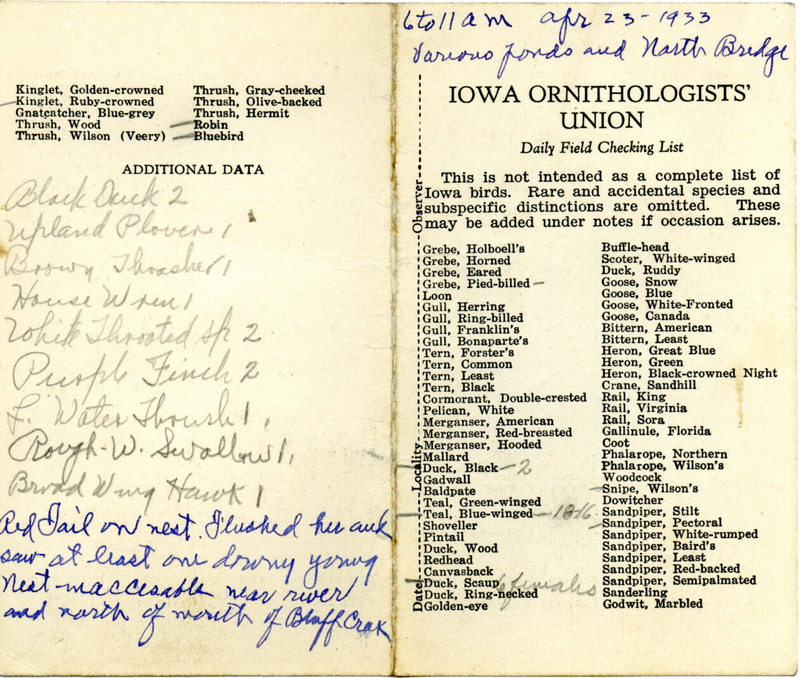 Kinglet, Golden-crowned
Kinglet, Ruby-crowned
Gnatcatcher, Blue-grey
Thrush, Wood
Thrush, Wilson (Veery)
Thrush, Gray-cheeked
Thrush, Olive-backed
Thrush, Hermit
Robin
Bluebird
ADDITIONAL DATA
Black Duck 2
Upland Plover 1
Brown Thrasher 1
House Wren 1
White Throated Sp 2
Purple Finch 2
L. Water Thrush 1,
Rough-W. Swallow 1,
Broad Wing Hawk 1
Red Tail on nest. Flushed her and
saw at least one downy young
Nest inaccesable near river
and north of mouth of Bluff Creek
6 to 11 am apr 23-1933
Various ponds and North Bridge
IOWA ORNITHOLOGISTS'
UNION
Daily Field Checking List
This is not intended as a complete list of
Iowa birds. Rare and accidental species and
subspecific distinctions are omitted. These
may be added under notes if occasion arises.
Observer
Locality
Date
Grebe, Holboell's
Grebe, Horned
Grebe, Eared
Grebe, Pied-billed –
Loon
Gull, Herring
Gull, Ring-billed
Gull, Franklin's
Gull, Bonaparte's
Tern, Forster's
Tern, Common
Tern, Least
Tern, Black
Cormorant, Double-crested
Pelican, White
Merganser, American
Merganser, Red-breasted
Merganser, Hooded
Mallard
Duck, Black – 2
Gadwall
Baldpate
Teal, Green-winged
Teal, Blue-winged – 1816
Shoveller
Pintail
Duck, Wood
Redhead
Canvasback
Duck, Scaup 6 females
Duck, Ring-necked
Golden-eye
Buffle-head
Scoter, White-winged
Duck, Ruddy
Goose, Snow
Goose, Blue
Goose, White-Fronted
Goose, Canada
Bittern, American
Bittern, Least
Heron, Great Blue
Heron, Green
Heron, Black-crowned Night
Crane, Sandhill
Rail, King
Rail, Virginia
Rail, Sora
Gallinule, Florida
Coot
Phalarope, Northern
Phalarope, Wilson's
Woodcock
Snipe, Wilson's
Dowitcher
Sandpiper, Stilt
Sandpiper, Pectoral
Sandpiper, White-rumped
Sandpiper, Baird's
Sandpiper, Least
Sandpiper, Red-backed
Sandpiper, Semipalmated
Sanderling
Godwit, Marbled